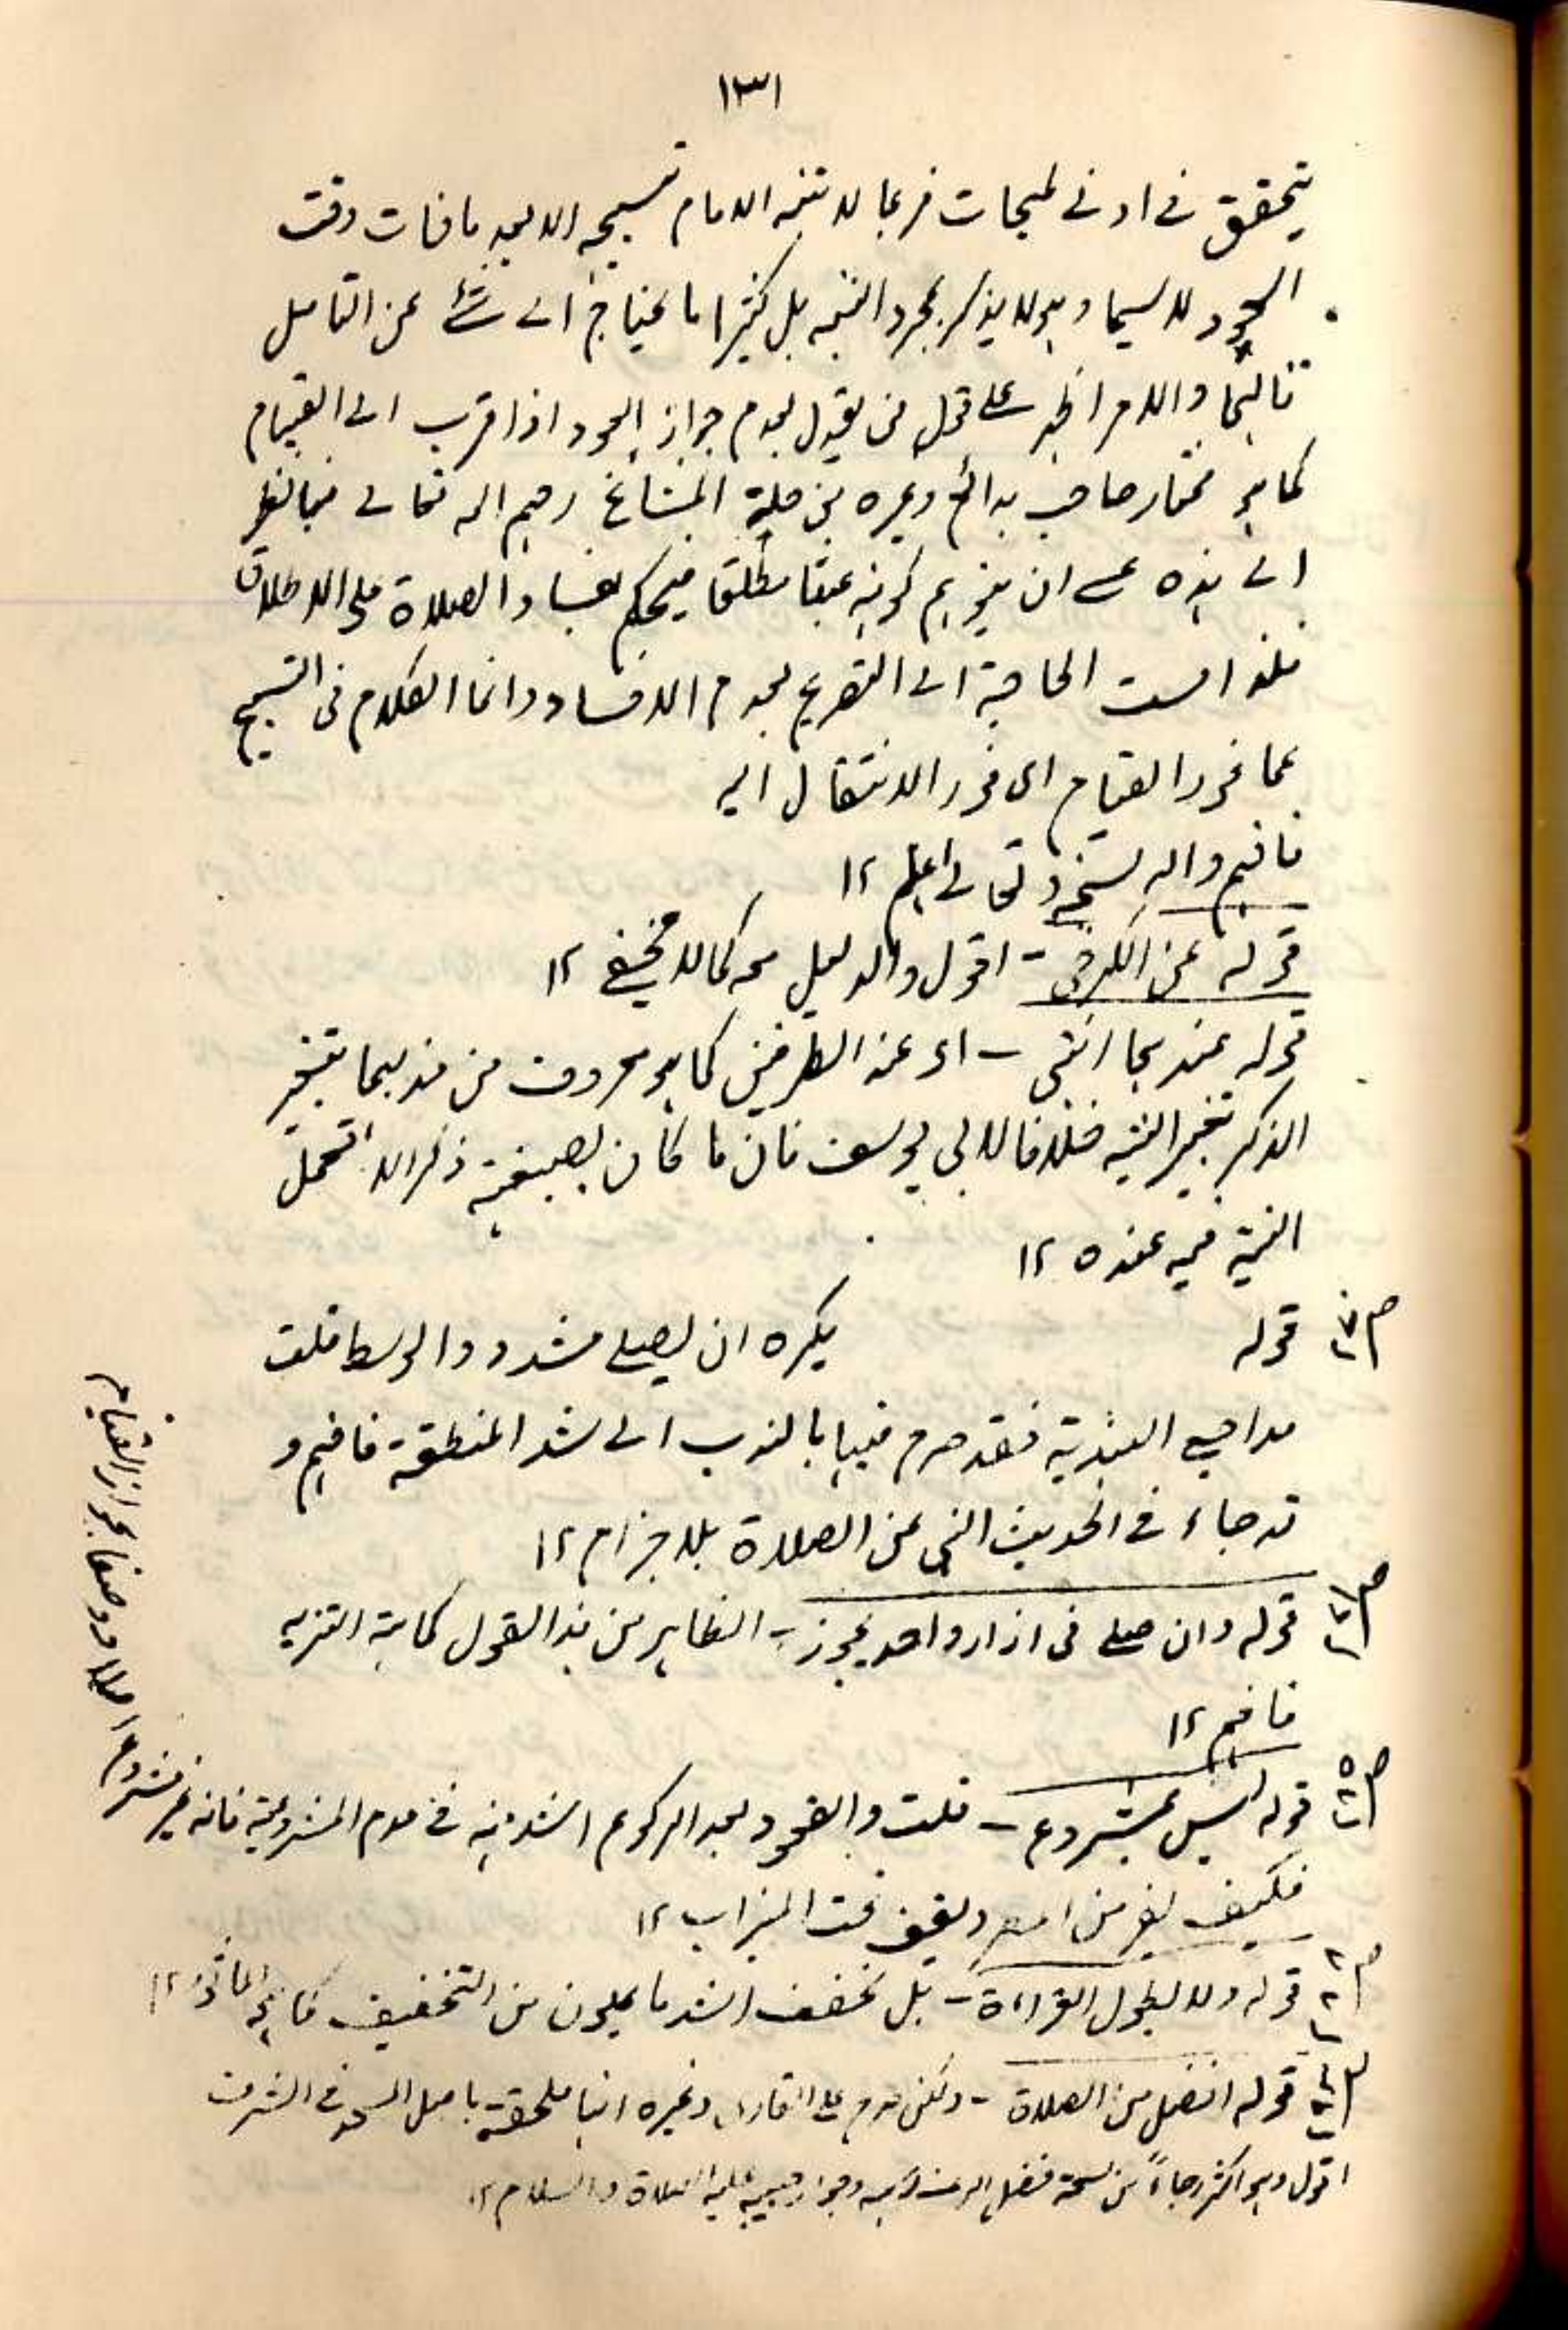 ١٣١
يتحقق في ادنى لمحات فربما لا يتنبه الامام بتسبيحه الا بعد ما فات وقت
العود لا سيما وهو لا يذكر بمجرد التنبه بل كثيرا ما يحتاج الى شئ من التامل
غالبا والامر اظهر على قول من يقول بعدم جواز العود اذا قرب الى القيام
كما هو مختار صاحب بدائع وغيره من جلة المشائخ رحمهم الله تعالى فبالنظر
الى هذه عسى ان يتوهم كونه عبثا مطلقا فيحكم بفساد الصلاة على الاطلاق
فلذا مست الحاجة الى التصريح بعدم الافساد وانما الكلام في التسبيح
عما فور القيام اى فور الانتقال اليه
فافهم والله سبحنه وتعالى اعلم ١٢
قوله عن الكرخي - اقول والدليل معه كما لا يخفى ١٢
قوله عندهما انتهى - اى عند الطرفين كما هو معروف من مذهبهما بتغير
الذكر بتغير النية خلافا لابي يوسف فان ما كان بصيغته ذكرا لا تعمل
النية فيه عنده ١٢
قوله يكره ان يصلي مشدود الوسط قلت
فقد صرح فيها بالندب الى شد المنطقة فافهم و
قد جاء في الحديث النهي عن الصلاة بلا حزام ١٢
قوله وان صلى في ازار واحد يجوز - الظاهر من هذا القول كراهة التنزيه
فافهم ١٢
قوله ليس بمشروع - قلت والقعود بعد الركوع اشد منه في عدم المشروعية فانه غير مشروع
اصلا ووصفا بجواز القيام
فكيف يفر من المطر ويقف تحت الميزاب ١٢
قوله ولا يطول القراءة - بل يخفف اشد ما يكون من التخفيف كما هو الماثور ١٢
قوله افضل من الصلاة - ولكن صرح على القاري وغيره انها ملحقة باصل المسجد في الشرف
اقول وهو اكثر رجاءً من سعة فضل الله عند وجوار حبيبه عليه الصلاة والسلام ١٢